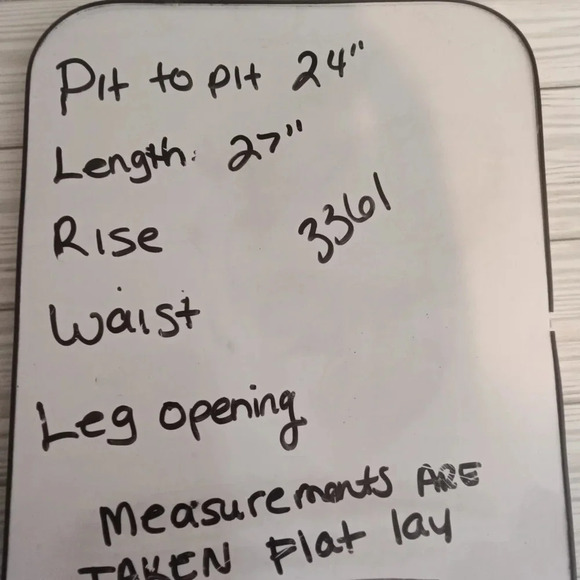 Pit to pit 24"
Length: 27"
Rise
3361
Waist
Leg opening
Measurements ARE
TAKEN Flat lay